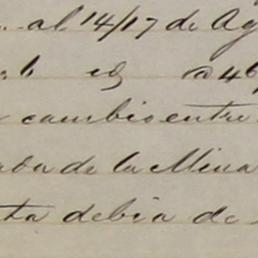 al 14/17 de Ag
@ 46
cambio entre
de la Mina
ta debia de